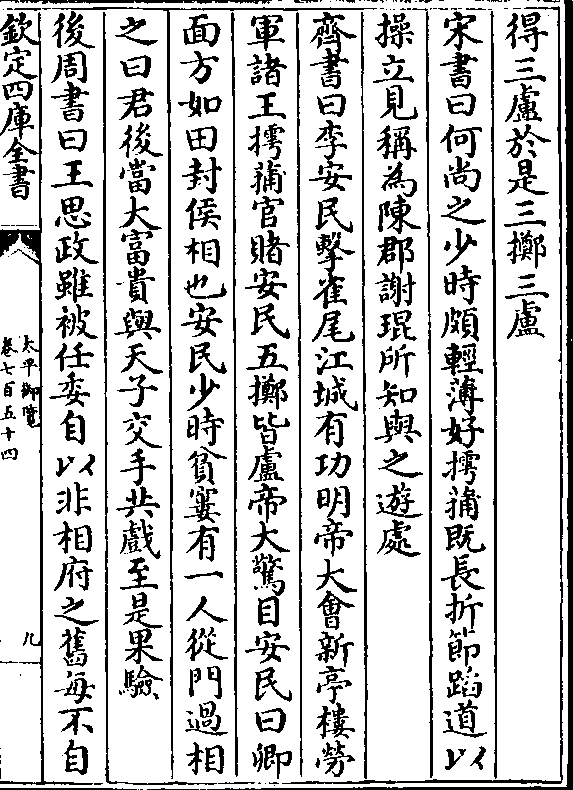 得三盧於是三擲三盧
宋書曰何尚之少時頗輕薄好摴蒱既長折節蹈道以
操立見稱為陳郡謝琨所知與之遊處
齊書曰李安民擊雀尾江城有功明帝大會新亭樓勞
軍諸王摴蒱官賭安民五擲皆盧帝大驚目安民曰卿
面方如田封侯相也安民少時貧窶有一人從門過相
之曰君後當大富貴與天子交手共戲至是果驗
後周書曰王思政雖被任委自以非相府之舊每不自
欽定四庫全書
太平御覽
卷七百五十四
九